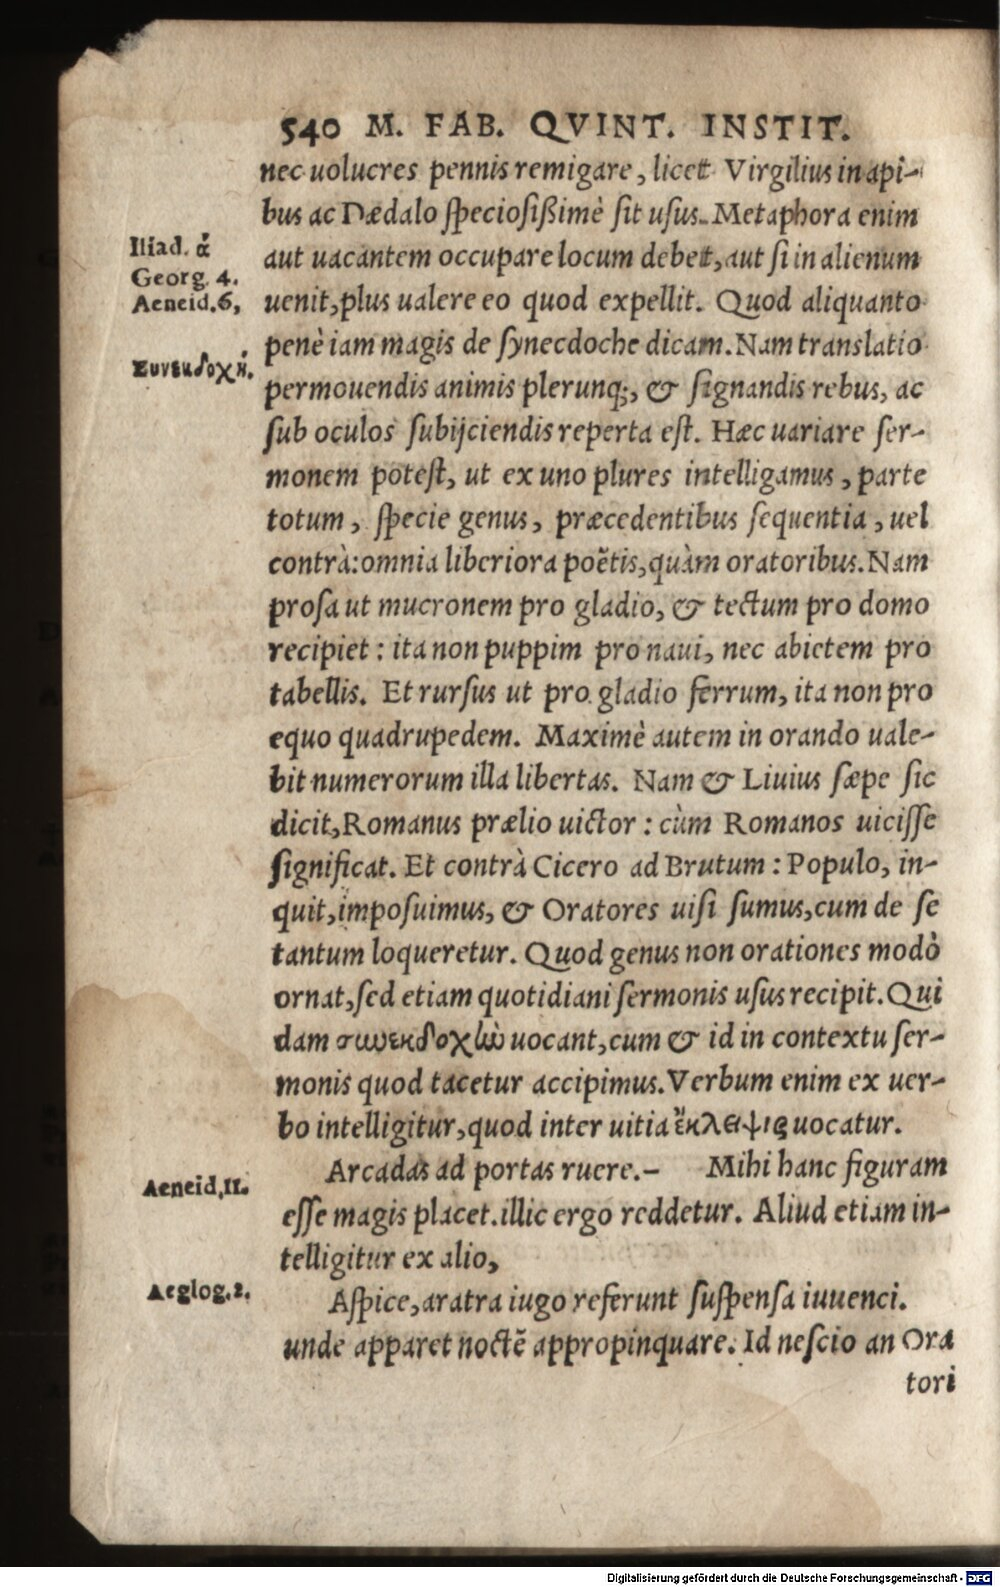 540 M. FAB. QVINT. INSTIT.
nec uolucres pennis remigare, licet Virgilius in api-
bus ac Dædalo speciosißimè sit usus. Metaphora enim
Iliad. α
Georg. 4.
Aeneid. 6,
aut uacantem occupare locum debet, aut si in alienum
uenit, plus ualere eo quod expellit. Quod aliquanto
penè iam magis de synecdoche dicam. Nam translatio
Συνεκδοχή.
permouendis animis plerunq;, & signandis rebus, ac
sub oculos subijciendis reperta est. Hæc uariare ser-
monem potest, ut ex uno plures intelligamus, parte
totum, specie genus, præcedentibus sequentia, uel
contrà: omnia liberiora poëtis, quàm oratoribus. Nam
prosa ut mucronem pro gladio, & tectum pro domo
recipiet: ita non puppim pro naui, nec abietem pro
tabellis. Et rursus ut pro gladio ferrum, ita non pro
equo quadrupedem. Maximè autem in orando uale-
bit numerorum illa libertas. Nam & Liuius sæpe sic
dicit, Romanus prælio uictor: cùm Romanos uicisse
significat. Et contrà Cicero ad Brutum: Populo, in-
quit, imposuimus, & Oratores uisi sumus, cum de se
tantum loqueretur. Quod genus non orationes modò
ornat, sed etiam quotidiani sermonis usus recipit. Qui
dam συνεκδοχὴν uocant, cum & id in contextu ser-
monis quod tacetur accipimus. Verbum enim ex uer-
bo intelligitur, quod inter uitia ἔκλειψις uocatur.
Arcadas ad portas ruere.- Mihi hanc figuram
Aeneid, 11.
esse magis placet. illic ergo reddetur. Aliud etiam in-
telligitur ex alio,
Aeglog. 2.
Aspice, aratra iugo referunt suspensa iuuenci.
unde apparet noctē appropinquare. Id nescio an Ora
tori
Digitalisierung gefördert durch die Deutsche Forschungsgemeinschaft - DFG